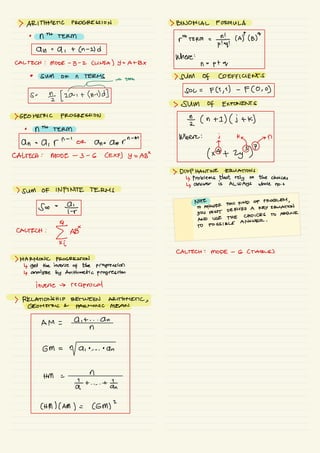 > ARITHMETIC PROGRESSION
• nth TERM
an = a1 + (n-1)d
CALTECH: MODE - 3 - 2 (LINEAR) y = A+Bx
• SUM OF n TERMS
S = n/2 [2a1 + (n-1)d]
> GEOMETRIC PROGRESSION
• nth TERM
an = a1 r^n-1 or an = am r^n-m
CALTECH: MODE - 3 - 6 (EXP) y = AB^x
> SUM OF INFINITE TERMS
S∞ = a1/1-r
CALTECH: Σ AB^x
> HARMONIC PROGRESSION
↳ get the inverse of the progression
↳ analyze by Arithmetic progression
inverse → reciprocal
> RELATIONSHIP BETWEEN ARITHMETIC,
GEOMETRIC & HARMONIC MEAN
AM = a1+...an/n
GM = n√a1•...•an
HM = n/(1/a1 +...+ 1/an)
(HM)(AM) = (GM)²
> BINOMIAL FORMULA
rth TERM = n!/p!q! (A)^p (B)^q
Where:
n = p + q
> SUM OF COEFFICIENTS
SOC = F(1,1) - F(0,0)
> SUM OF EXPONENTS
n/2 (n+1)(j+k)
Where: j k n
> DIOPHANTINE EQUATION
↳ Problems that rely on the choices
↳ answer is ALWAYS whole no.s
NOTE
TO ANSWER THIS KIND OF PROBLEM,
YOU MUST DERIVED A KEY EQUATION
AND USE THE CHOICES TO ARRIVE
TO POSSIBLE ANSWER.
CALTECH: MODE - 6 (TABLE)